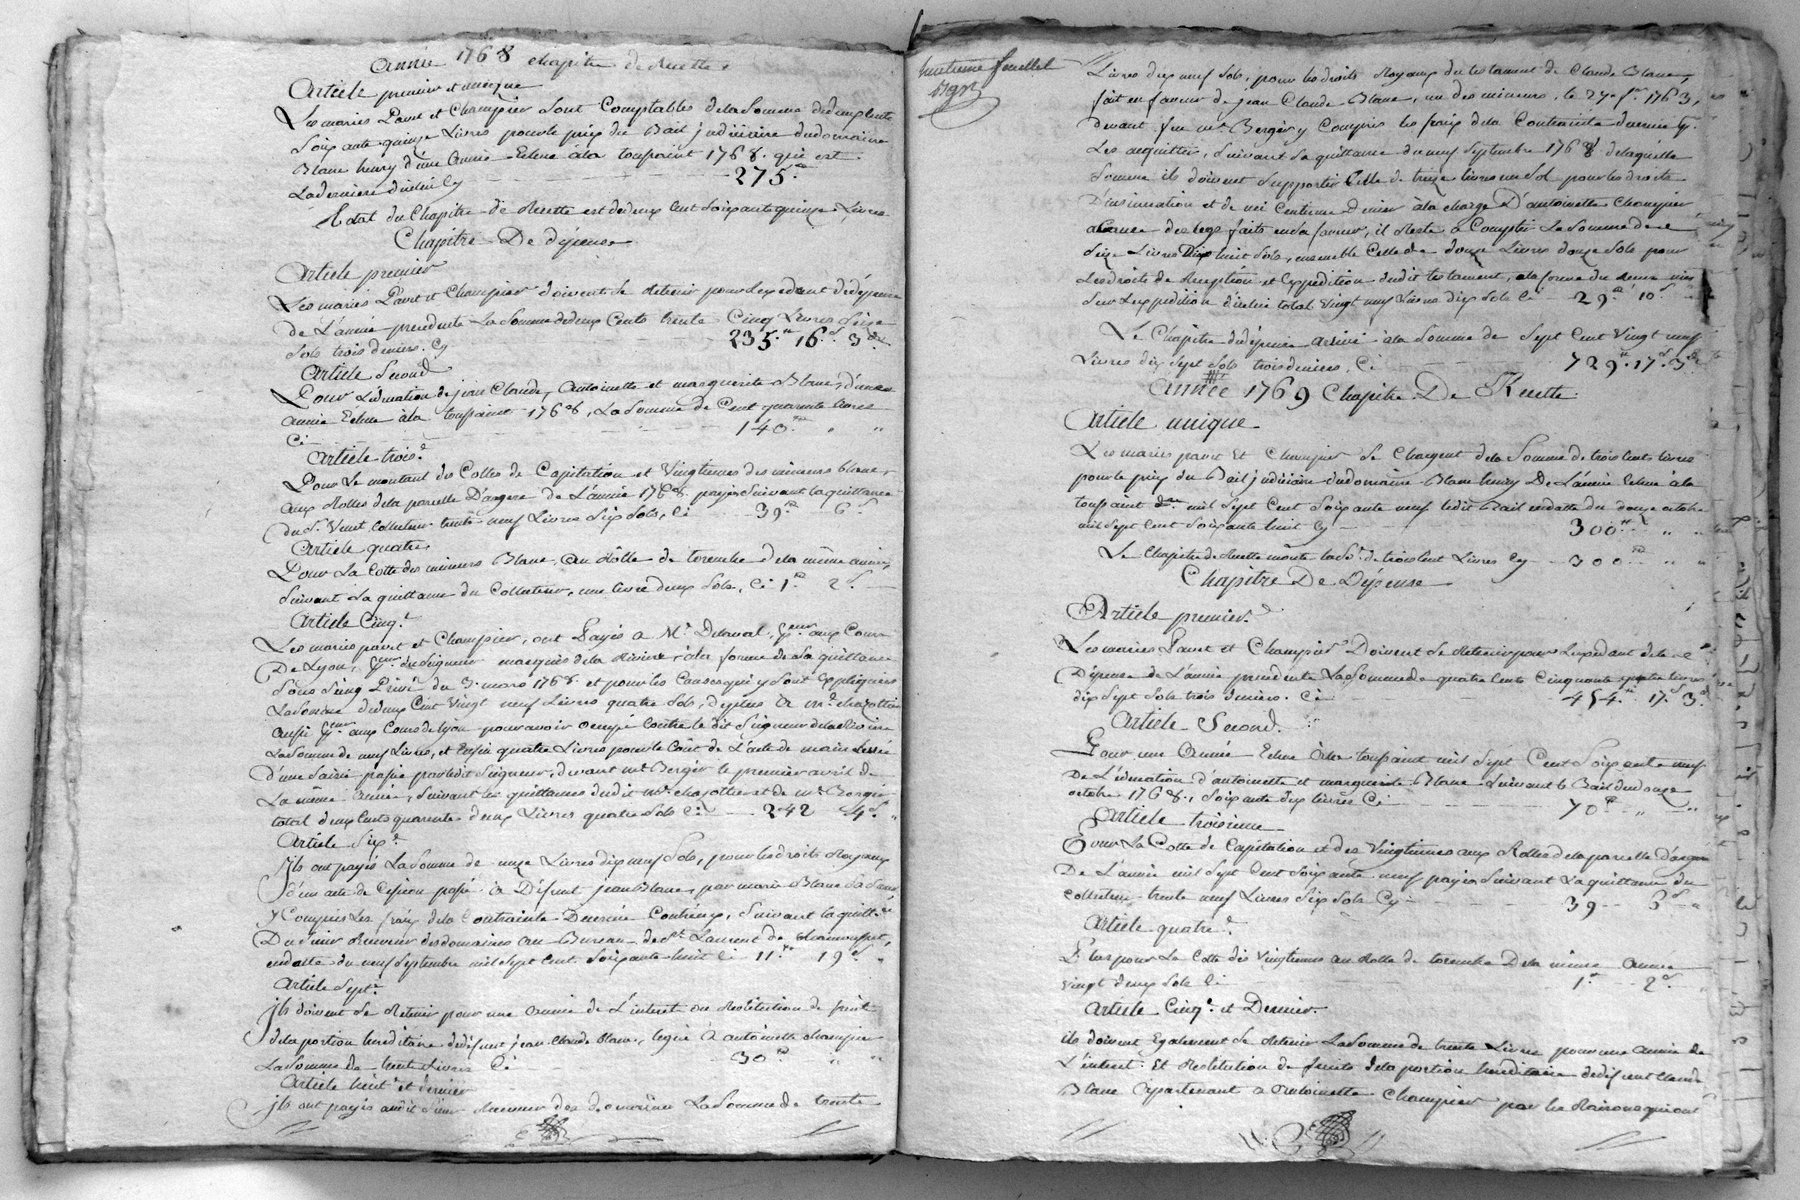 Année 1768 chapitre de Recette
Article premier et unique
Les mariés Pavet et Champier sont Comptables de la Somme de deux Cents
Soixante quinze Livres pour le prix du Bail judiciaire du domaine
Blanc henry d'une Année Echue à la toussaint 1768. qui est
La derniere dudit Cy 275.#
Total du Chapitre de Recette est de deux Cent Soixante quinze Livres
Chapitre De dépense
Article premier
Les mariés Pavet et Champier doivent Se Retenir pour l'excédent de dépense
de L'année precedente La Somme de deux Cents trente Cinq Livres Seize
Sols trois deniers. Cy 235.# 16.s 3.d
Article Second
Pour L'éducation de jean Claude, Antoinette et marguerite Blanc, d'une
année Echue à la toussaint 1768, La Somme de Cent quarante Livres
Ci 140.# " "
Article trois.e
Pour Le montant des Cottes de Capitation et Vingtiemes des mineurs blanc,
aux Rolles de la parcelle D'argere de L'année 1768. payés Suivant la quittance
du S.r Venet Collecteur trente neuf Livres Six Sols, Ci 39.# 6.s
Article quatre
Pour La Cotte des mineurs Blanc, au Rôlle de toranche de la même année,
Suivant La quittance du Collecteur, une livre deux Sols, Ci 1.# 2.s
Article Cinq.e
Les mariés pavet et Champier, ont Payés a M.r Delaval, p.eur aux Cours
De Lyon, p.eur du Seigneur marquis de la Riviere, à la forme de la quittance
Sous Seing Privé du 3. mars 1768. et pour les Causes qui y Sont Expliquées
La Somme de deux Cent Vingt neuf Livres quatre Sols, de plus à M.e chazottier
aussi p.eur aux Cours de Lyon pour avoir occupé Contre le dit Seigneur de la Riviere
La Somme de neuf Livres, et Enfin quatre Livres pour le Coût de L'acte de main Levée
d'une Saisie passée par ledit Seigneur, devant M.e Berger le premier avril de
La même Année, Suivant les quittances dudit M.e chazottier et de M.e Berger
total deux Cents quarante deux Livres quatre Sols Ci 242 4.s "
Article Six.e
Ils ont payés La Somme de onze Livres dix neuf Sols, pour les droits Royaux
d'un acte de Cession passé à Défunt jean Blanc, par marie Blanc Sa Sœur,
y Compris Les fraix de la Contrainte Decernée Contr'eux, Suivant la quitt.ce
Du Sieur Receveur des domaines au Bureau de S.t Laurent de Chamousset,
en datte du neuf Septembre mil Sept Cent Soixante huit Ci 11.# 19.s "
Article Sept.e
Ils doivent Se Retenir pour une Année de L'interet ou Restitution de fruit
de la portion hereditaire de défunt jean Claude Blanc, legué à antoinette champier
La Somme de trente Livres Ci 30.# " "
Article huit.e et dernier
Ils ont payés audit Sieur Receveur des domaines La Somme de trente
huitieme feuillet
Livres dix neuf Sols, pour les droits Royaux du testament de Claude Blanc,
fait en faveur de jean Claude Blanc, un des mineurs, le 27 f.er 1763,
devant feu M.e Berger y Compris les fraix de la Contrainte decernée p.r
Les acquitter, Suivant La quittance du neuf Septembre 1768 de laquelle
Somme ils doivent Supporter Celle de treize livres un Sol pour les droits
D'insinuation et de mi Centieme denier à la charge D'antoinette Champier
a Cause des legs faits en Sa faveur, il Reste a Compter La Somme de
Seize Livres Dix huit Sols, ensemble Celle de douze Livres douze Sols pour
Les droits de Reception et Expedition dudit testament, a la forme du Recu mis
Sur L'expedition d'icelui total vingt neuf Livres dix Sols Ci 29.# 10.s
Le Chapitre de dépense arrive à la Somme de Sept Cent Vingt neuf
Livres dix Sept Sols trois deniers, Ci 729.# 17.s 3.d
Année 1769 Chapitre De Recette
Article unique
Les mariés pavet Et Champier Se Chargent de la Somme de trois Cents livres
pour le prix du Bail judiciaire du domaine Blanc henry De L'année Echue à la
toussaint d.re mil Sept Cent Soixante neuf ledit Bail en datte du douze octobre
mil Sept Cent Soixante huit Cy 300.# " "
Le Chapitre de Recette monte la So.e de trois Cent Livres Cy 300.# " "
Chapitre De Dépense
Article premier.
Les mariés Pavet et Champier Doivent Se Retenir pour L'excedant de la
Dépense de L'année precedente La Somme de quatre Cents Cinquante quatre livres
dix Sept Sols trois deniers. Ci 454.# 17.s 3.d
Article Second.
Pour une Année Echue à la toussaint mil Sept Cent Soixante neuf
De L'éducation d'antoinette et marguerite Blanc Suivant le Bail du douze
octobre 1768., Soixante dix livres Ci 70.# " "
Article troisieme
Pour La Cotte de Capitation et des Vingtiemes aux Rolles de la parcelle d'argere
De L'année mil Sept Cent Soixante neuf payés Suivant La quittance du
Collecteur trente neuf Livres Six Sols Cy 39 6.s "
Article quatre.e
Plus pour La Cotte des Vingtiemes au Rolle de toranche De la même Année
vingt deux Sols Ci 1.# 2.s
Article Cinq.e et Dernier
ils doivent Egalement Se Retenir La Somme de trente Livres pour une Année de
L'interet Et Restitution de fruits de la portion hereditaire de défunt Claude
Blanc Appartenant a Antoinette Champier par les Raisons qui ont